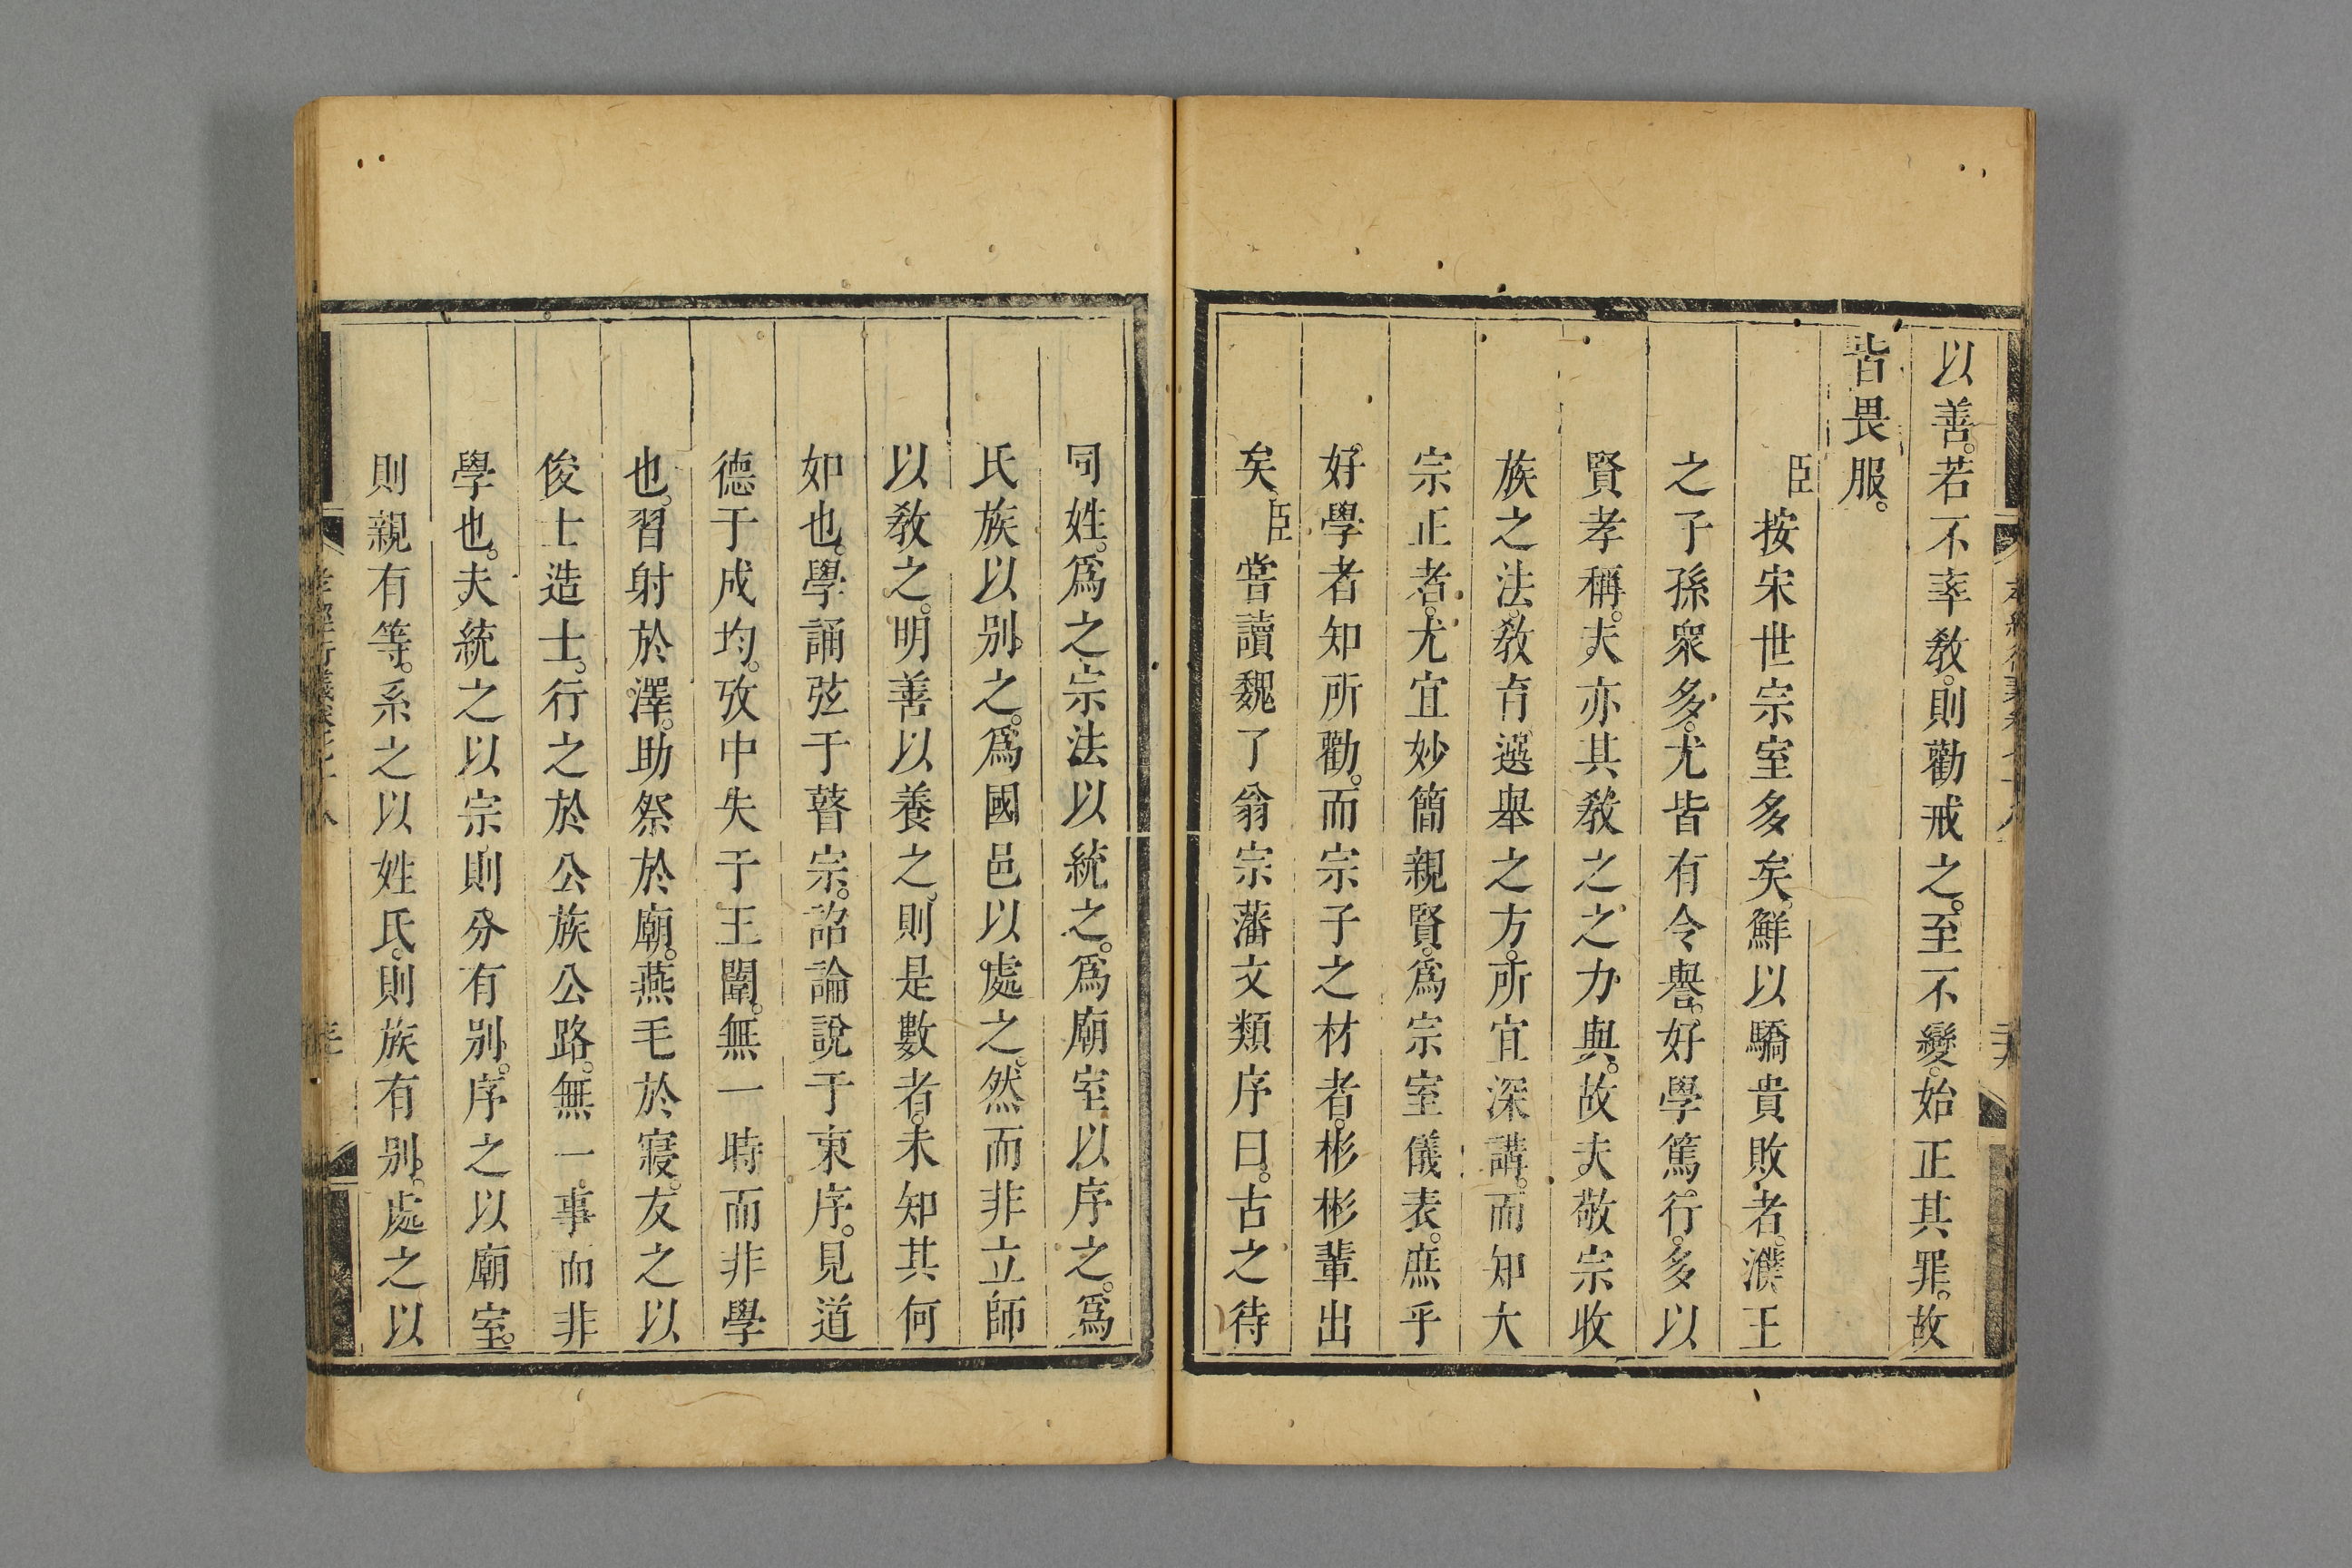 以善。若不率敎。則勸戒之。至不變。始正其罪。故
皆畏服。
臣按宋世宗室多矣。鮮以驕貴敗者。濮王
之子孫衆多。尤皆有令譽。好學篤行。多以
賢孝稱。夫亦其敎之之力與。故夫敬宗收
族之法。敎育選舉之方。所宜深講。而知大
宗正者。尤宜妙簡親賢。爲宗室儀表。庶乎
好學者知所勸。而宗子之材者。彬彬輩出
矣。臣嘗讀魏了翁宗藩文類序曰。古之待
同姓。爲之宗法以統之。爲廟室以序之。爲
氏族以别之。爲國邑以處之。然而非立師
以敎之。明善以養之。則是數者。未知其何
如也。學誦弦于瞽宗。詔論說于東序。見道
德于成均。攷中失于王闈。無一時而非學
也。習射於澤。助祭於廟。燕毛於寢。友之以
俊士造士。行之於公族公路。無一事而非
學也。夫統之以宗。則分有别。序之以廟室。
則親有等。系之以姓氏。則族有别。處之以